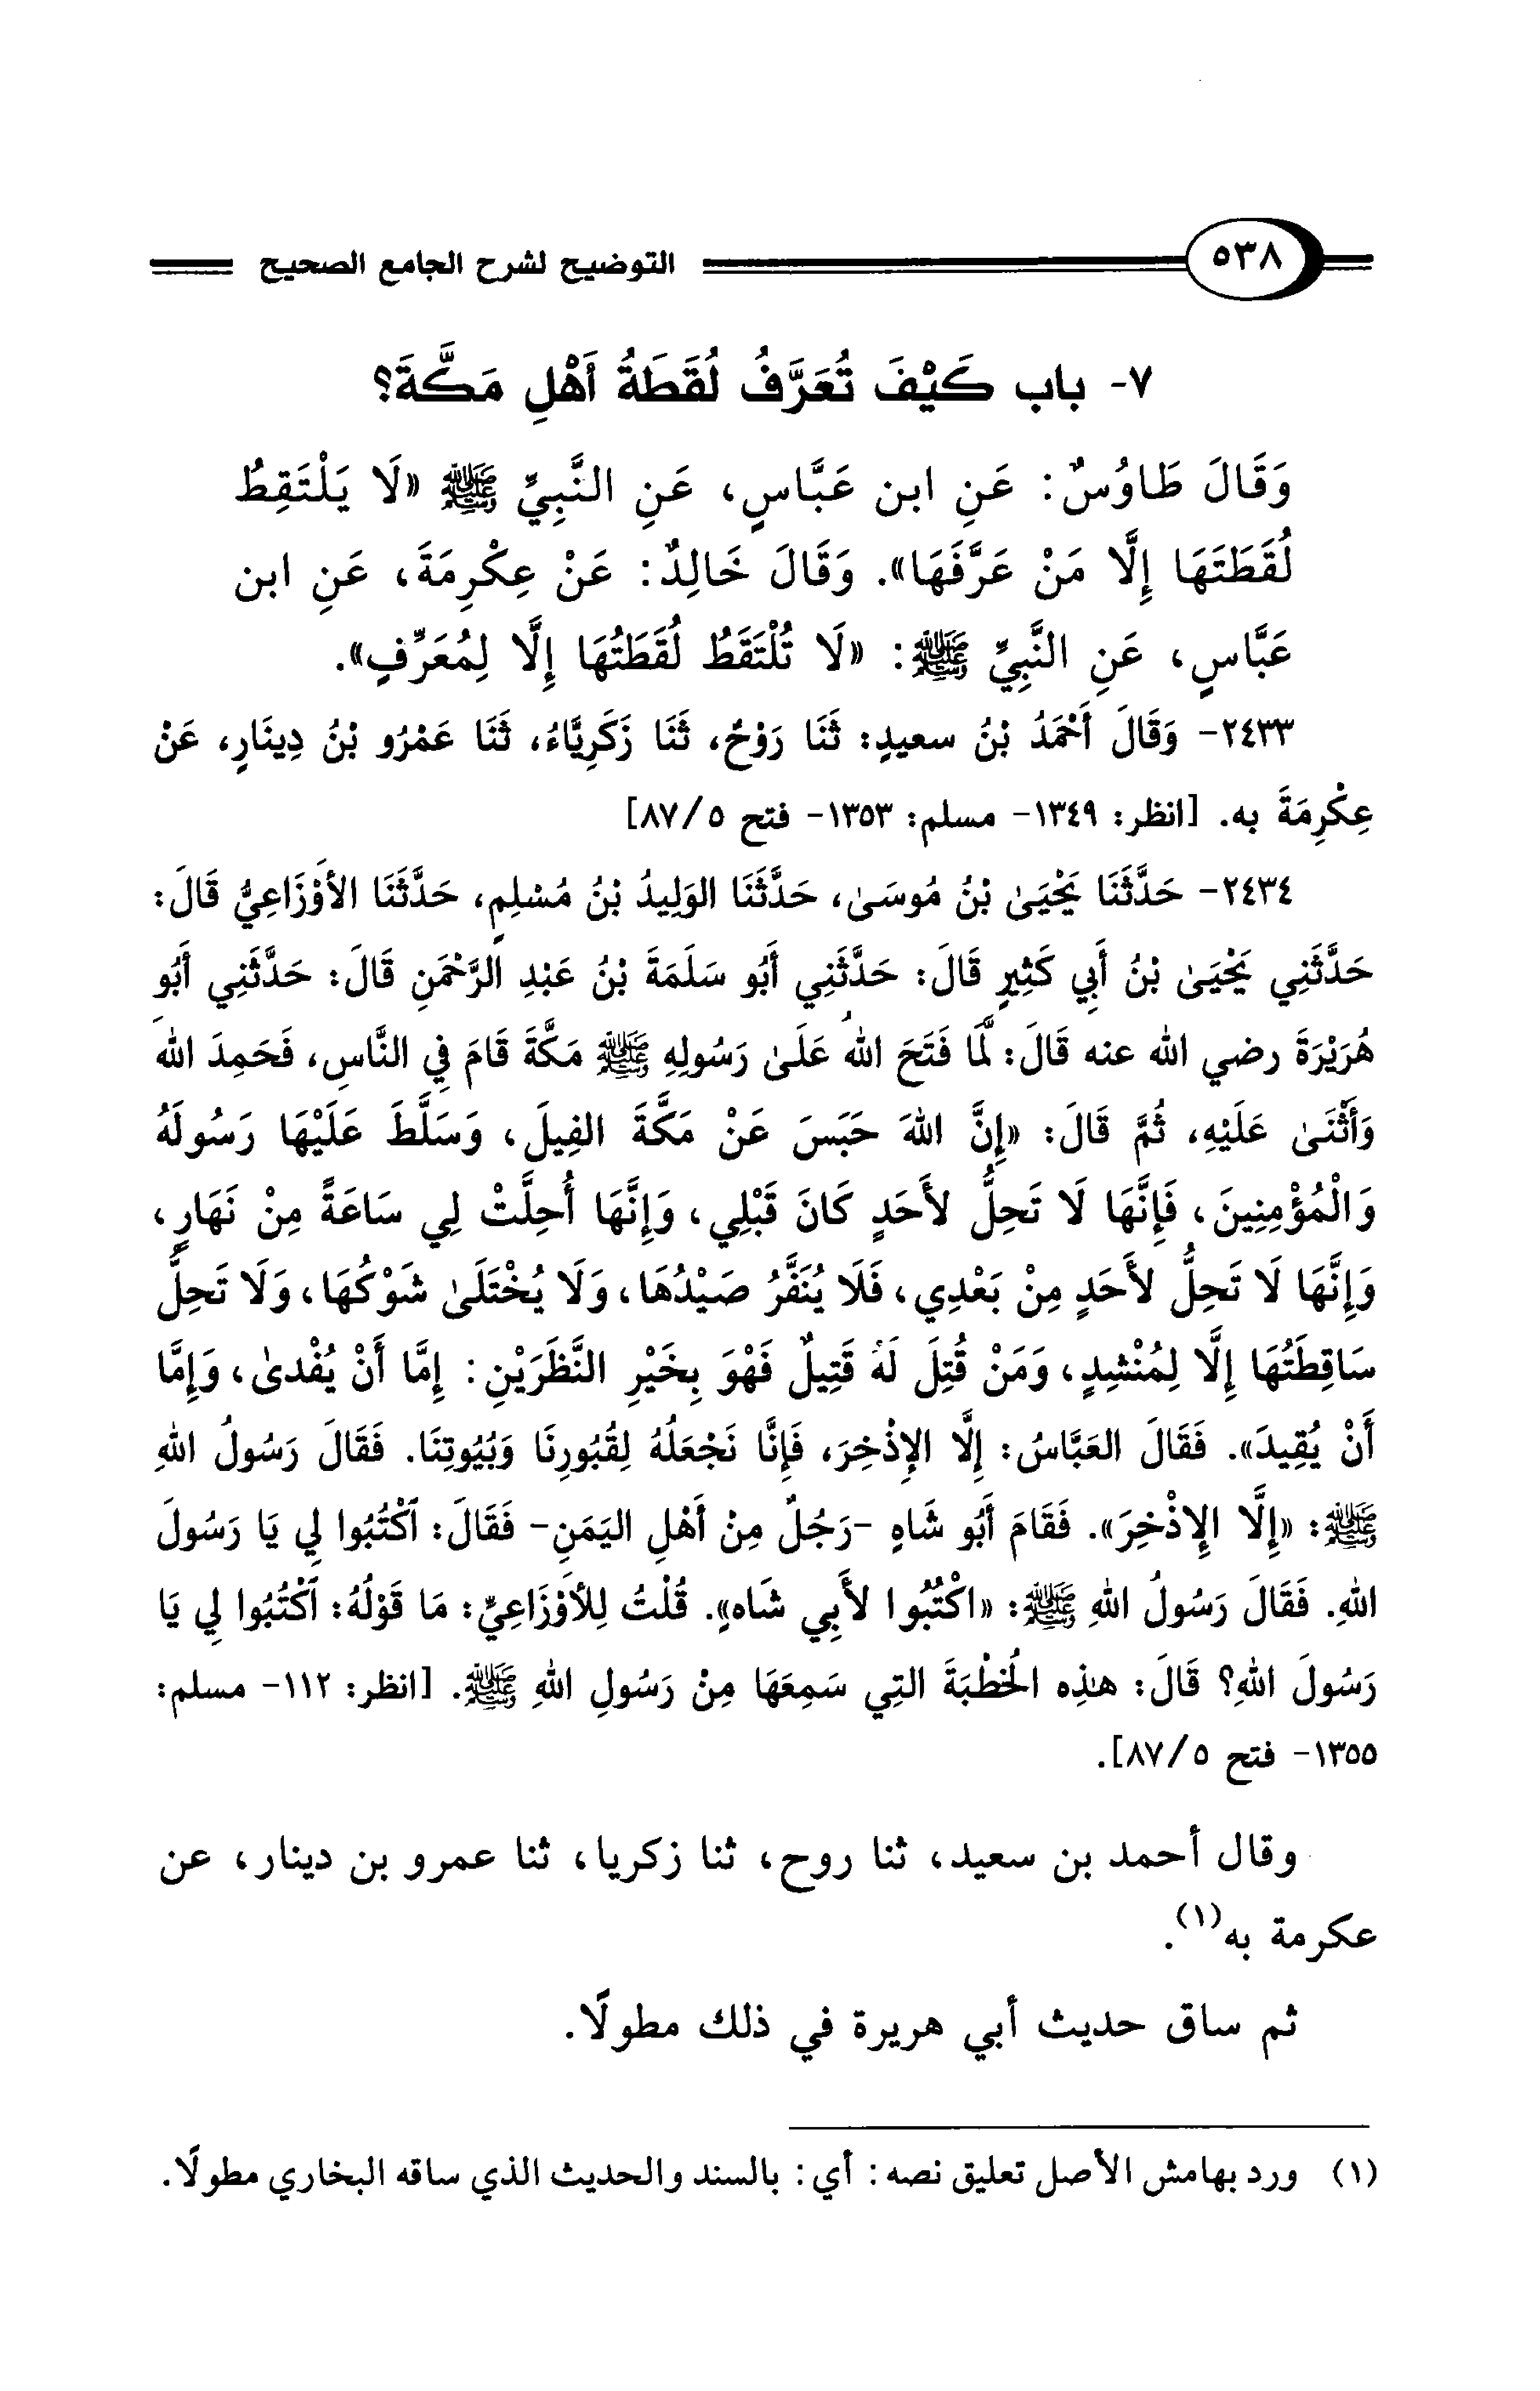 ٥٣٨ التوضيح لشرح الجامع الصحيح
٧- باب كَيْفَ تُعَرَّفُ لُقَطَةُ أَهْلِ مَكَّةَ؟
وَقَالَ طَاوُسٌ: عَنِ ابن عَبَّاسٍ، عَنِ النَّبِيِّ ﷺ «لَا يَلْتَقِطُ
لُقَطَتَهَا إِلَّا مَنْ عَرَّفَهَا». وَقَالَ خَالِدٌ: عَنْ عِكْرِمَةَ، عَنِ ابن
عَبَّاسٍ، عَنِ النَّبِيِّ ﷺ: «لَا تُلْتَقَطُ لُقَطَتُهَا إِلَّا لِمُعَرِّفٍ».
٢٤٣٣- وَقَالَ أَحْمَدُ بْنُ سعيدٍ: ثَنَا رَوْحٌ، ثَنَا زَكَرِيَّاءُ، ثَنَا عَمْرُو بْنُ دِينَارٍ، عَنْ
عِكْرِمَةَ به. [انظر: ١٣٤٩- مسلم: ١٣٥٣- فتح ٨٧/٥]
٢٤٣٤- حَدَّثَنَا يَحْيَىٰ بْنُ مُوسَىٰ، حَدَّثَنَا الوَلِيدُ بْنُ مُسْلِمٍ، حَدَّثَنَا الأَوْزَاعِيُّ قَالَ:
حَدَّثَنِي يَحْيَىٰ بْنُ أَبِي كَثِيرٍ قَالَ: حَدَّثَنِي أَبُو سَلَمَةَ بْنُ عَبْدِ الرَّحْمَنِ قَالَ: حَدَّثَنِي أَبُو
هُرَيْرَةَ رضي الله عنه قَالَ: لَمَّا فَتَحَ اللهُ عَلَىٰ رَسُولِهِ ﷺ مَكَّةَ قَامَ فِي النَّاسِ، فَحَمِدَ اللهَ
وَأَثْنَىٰ عَلَيْهِ، ثُمَّ قَالَ: «إِنَّ اللهَ حَبَسَ عَنْ مَكَّةَ الفِيلَ، وَسَلَّطَ عَلَيْهَا رَسُولَهُ
وَالْمُؤْمِنِينَ، فَإِنَّهَا لَا تَحِلُّ لأَحَدٍ كَانَ قَبْلِي، وَإِنَّهَا أُحِلَّتْ لِي سَاعَةً مِنْ نَهَارٍ،
وَإِنَّهَا لَا تَحِلُّ لأَحَدٍ مِنْ بَعْدِي، فَلَا يُنَفَّرُ صَيْدُهَا، وَلَا يُخْتَلَىٰ شَوْكُهَا، وَلَا تَحِلُّ
سَاقِطَتُهَا إِلَّا لِمُنْشِدٍ، وَمَنْ قُتِلَ لَهُ قَتِيلٌ فَهْوَ بِخَيْرِ النَّظَرَيْنِ: إِمَّا أَنْ يُفْدىٰ، وَإِمَّا
أَنْ يُقِيدَ». فَقَالَ العَبَّاسُ: إِلَّا الإِذْخِرَ، فَإِنَّا نَجْعَلُهُ لِقُبُورِنَا وَبُيُوتِنَا. فَقَالَ رَسُولُ اللهِ
ﷺ: «إِلَّا الإِذْخِرَ». فَقَامَ أَبُو شَاهٍ -رَجُلٌ مِنْ أَهْلِ اليَمَنِ- فَقَالَ: ٱكْتُبُوا لِي يَا رَسُولَ
اللهِ. فَقَالَ رَسُولُ اللهِ ﷺ: «اكْتُبُوا لأَبِي شَاهٍ». قُلْتُ لِلأَوْزَاعِيِّ: مَا قَوْلُهُ: ٱكْتُبُوا لِي يَا
رَسُولَ اللهِ؟ قَالَ: هٰذِه الْخُطْبَةَ التِي سَمِعَهَا مِنْ رَسُولِ اللهِ ﷺ. [انظر: ١١٢- مسلم:
١٣٥٥- فتح ٨٧/٥].
وقال أحمد بن سعيد، ثنا روح، ثنا زكريا، ثنا عمرو بن دينار، عن
عكرمة به(١).
ثم ساق حديث أبي هريرة في ذلك مطولًا.
(١) ورد بهامش الأصل تعليق نصه: أي: بالسند والحديث الذي ساقه البخاري مطولًا.